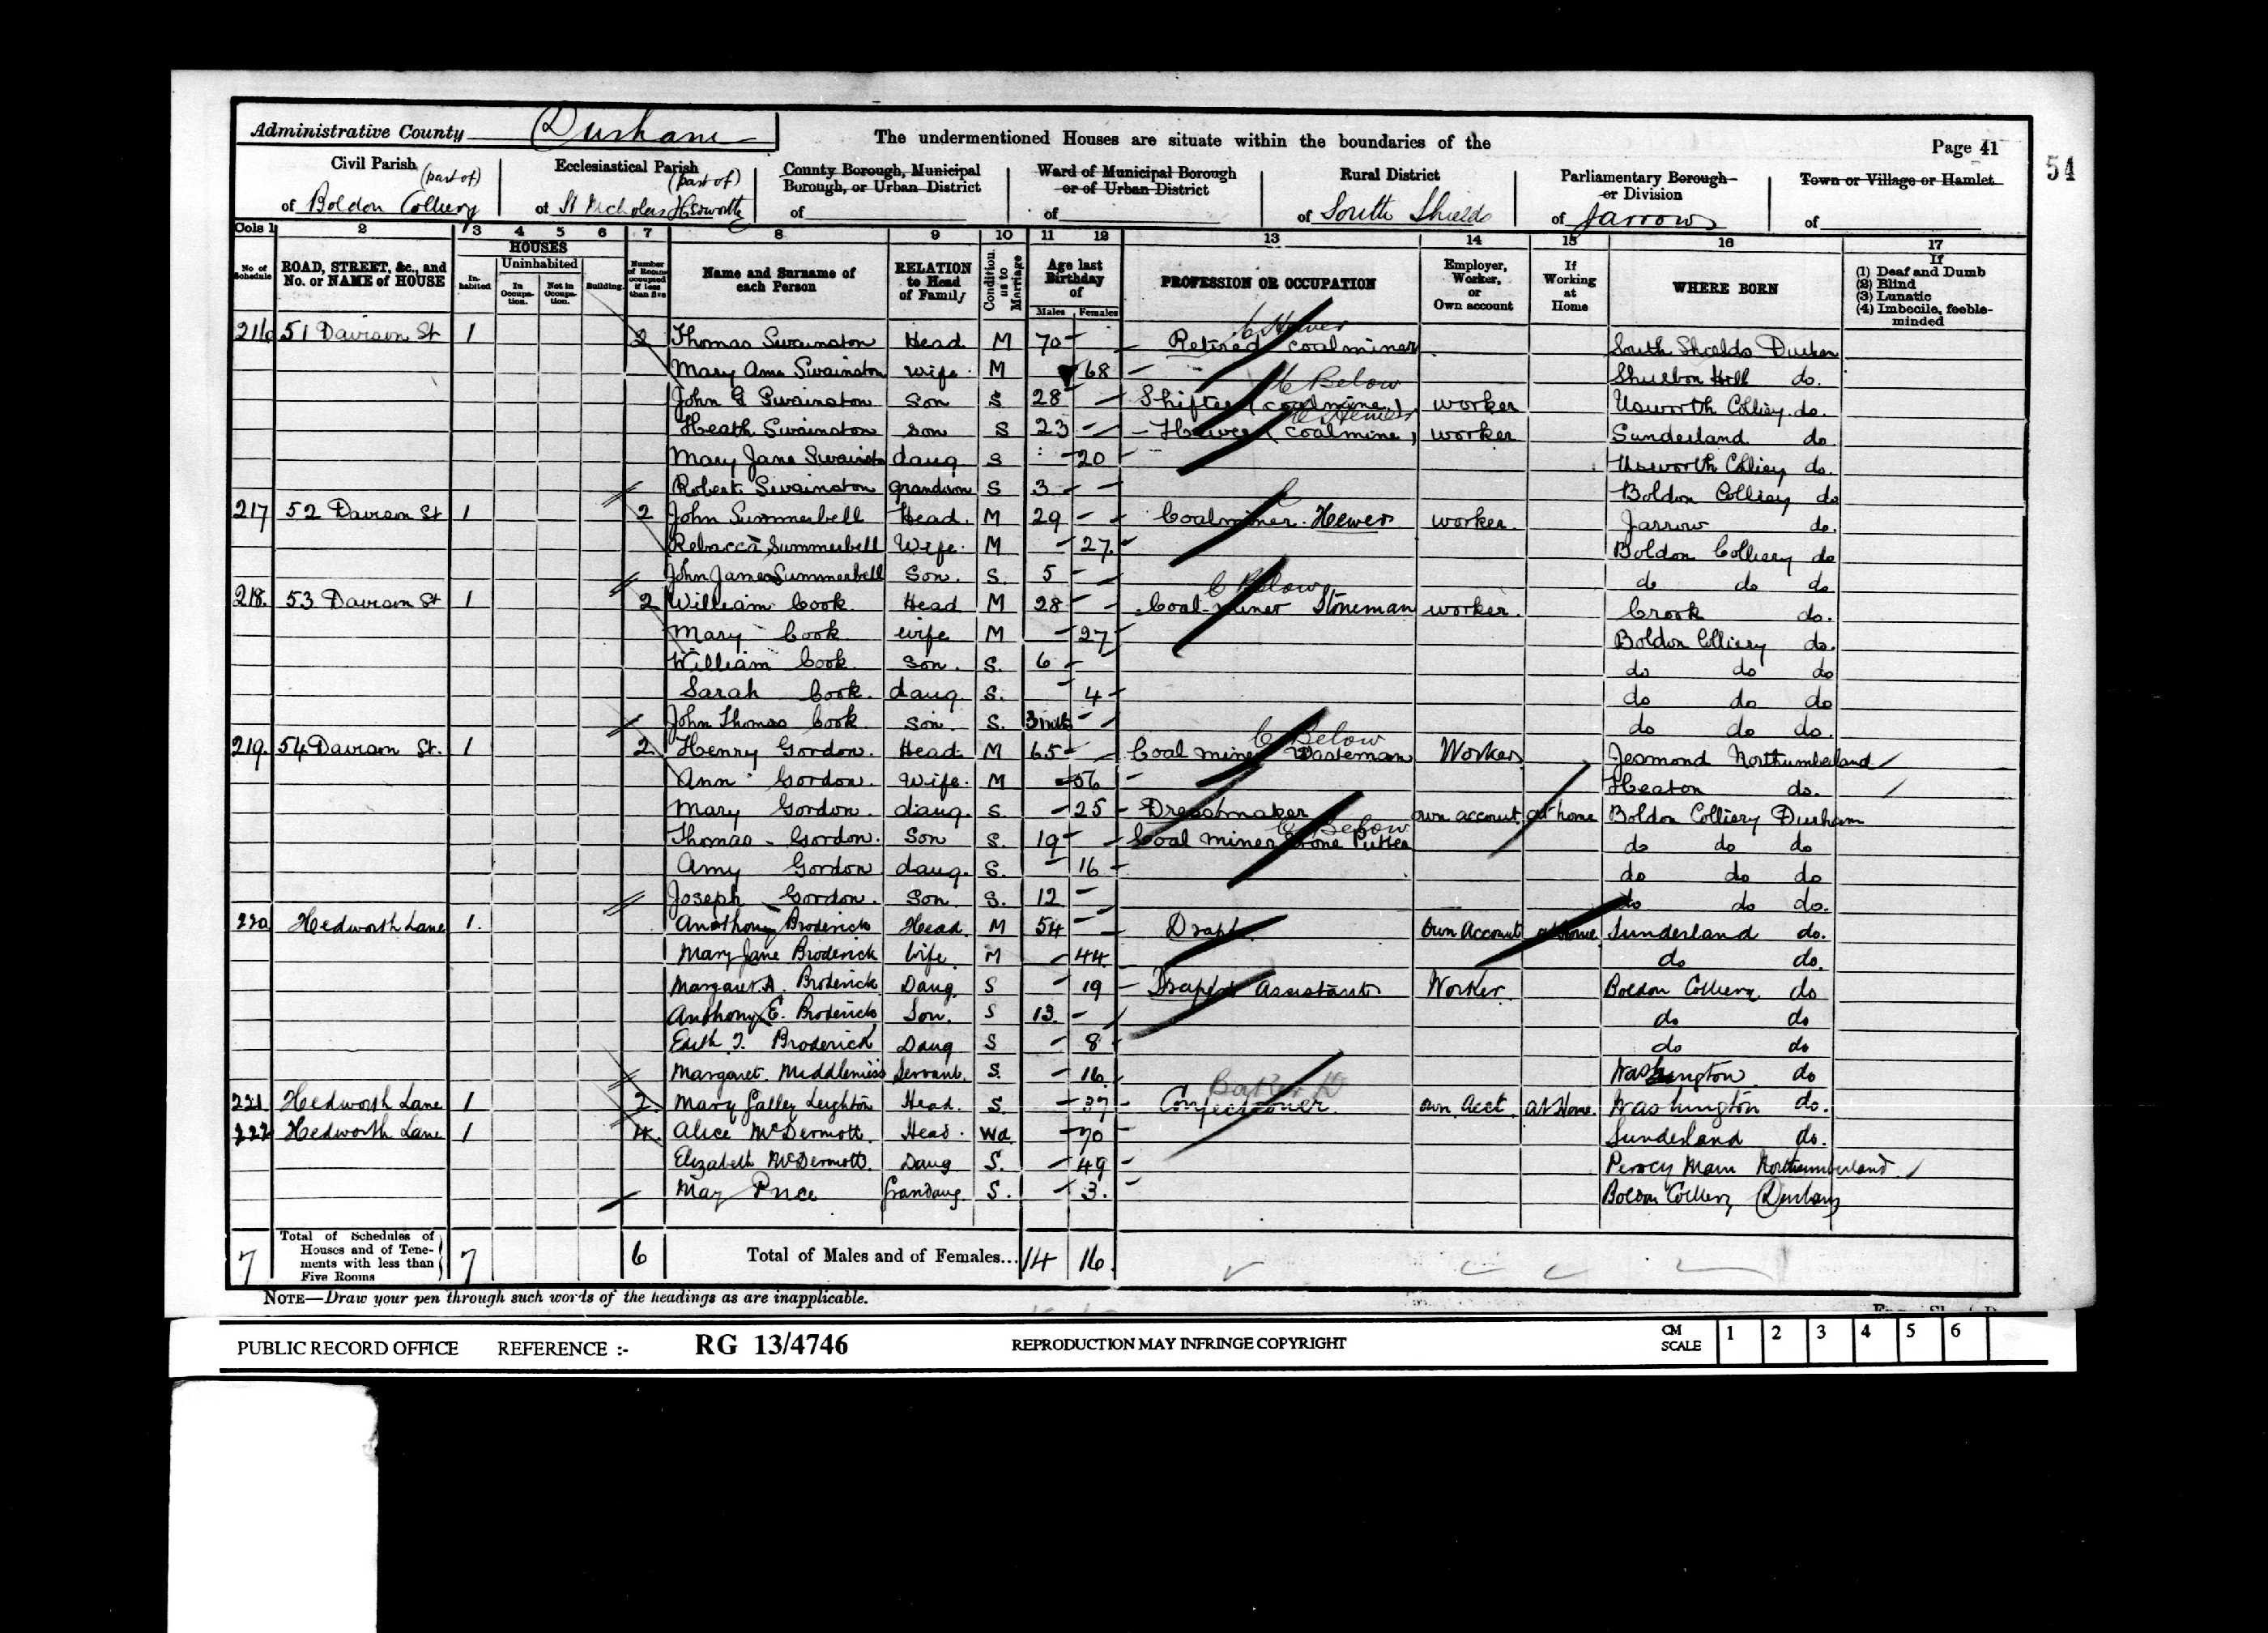 Administrative County Durham
The undermentioned Houses are situate within the boundaries of the
Page 41
54
Civil Parish (part of) of Boldon Colliery
Ecclesiastical Parish (part of) of St Nicholas Hedworth
County Borough, Municipal Borough, or Urban District of
Ward of Municipal Borough or of Urban District of
Rural District of South Shields
Parliamentary Borough or Division of Jarrow
Town or Village or Hamlet of
Cols 1 2 3 4 5 6 7 8 9 10 11 12 13 14 15 16 17
No. of Schedule
ROAD, STREET, &c., and No. or NAME of HOUSE
HOUSES
In-habited
Uninhabited
In Occupa-tion.
Not in Occupa-tion.
Building.
Number of Rooms occupied if less than five
Name and Surname of each Person
RELATION to Head of Family
Condition as to Marriage
Age last Birthday of
Males Females
PROFESSION OR OCCUPATION
Employer, Worker, or Own account
If Working at Home
WHERE BORN
If (1) Deaf and Dumb (2) Blind (3) Lunatic (4) Imbecile, feeble-minded
C Hewer
216 51 Davison St 1 3 Thomas Swainston Head M 70 Retired coalminer South Shields Durham
Mary Ann Swainston wife M 68 Hill do.
C Below
John G Swainston son S 28 Shifter (coalmine) worker Usworth Colliery do.
C Hewer
Heath Swainston son S 23 Hewer (coalmine) worker Sunderland do
Mary Jane Swainston daug S 20 Usworth Colliery do.
Robert Swainston grandson S 3 Boldon Colliery do
217 52 Davison St 1 2 John Summerbell Head M 29 Coalminer Hewer worker Jarrow do.
Rebacca Summerbell Wife M 27 Boldon Colliery do
John James Summerbell Son S. 5 do do do
C Below
218. 53 Davison St 1 2 William Cook Head M 28 Coal-miner Stoneman worker. Crook do.
Mary Cook wife M 27 Boldon Colliery do.
William Cook son. S. 6 do do do
Sarah Cook. daug S. 4 do do do
John Thomas Cook son. S. 3 mths do do do.
C Below
219. 54 Davison St. 1 2 Henry Gordon. Head M 65 Coal miner Wasteman Worker Jesmond Northumberland
Ann Gordon. Wife. M 56 Heaton do.
Mary Gordon. daug. S 25 Dressmaker own account at home Boldon Colliery Durham
C Below
Thomas Gordon. Son S. 19 Coal miner Stone Putter do do do
Amy Gordon daug. S. 16 do do do
Joseph Gordon. Son S. 12 do do do.
220 Hedworth Lane 1. Anothony Broderick Head M 54 Draper Own Account at home Sunderland do.
Mary Jane Broderick Wife M 44 do do.
Margaret A. Broderick Daug. S 19 Drapers Assistant Worker Boldon Colliery do
Anthony E. Broderick Son. S 13 do do
Edith J. Broderick Daug S 8 do do
Margaret. Middlemiss Servant. S. 16 Washington do
Baker
221 Hedworth Lane 1 2. Mary Galley Leighton Head. S. 37 Confectioner own acct at Home. Washington do.
222 Hedworth Lane 1 4. Alice McDermott. Head. Wd. 70 Sunderland do.
Elizabeth McDermott. Daug S. 49 Percy Main Northumberland
May Price Grandaug. S. 3. Boldon Colliery Durham
7 Total of Schedules of Houses and of Tene-ments with less than Five Rooms 7 6 Total of Males and of Females... 14 16
NOTE—Draw your pen through such words of the headings as are inapplicable.
PUBLIC RECORD OFFICE REFERENCE :- RG 13/4746 REPRODUCTION MAY INFRINGE COPYRIGHT CM SCALE 1 2 3 4 5 6